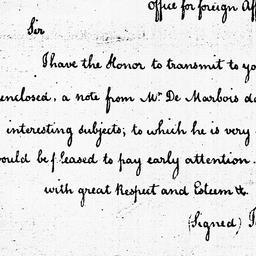 Office for foreign Aff
Sir
I have the Honor to transmit to yo
enclosed, a note from Mr. De Marbois da
interesting subjects; to which he is very
would be pleased to pay early attention.
with great Respect and Esteem &.
(Signed)